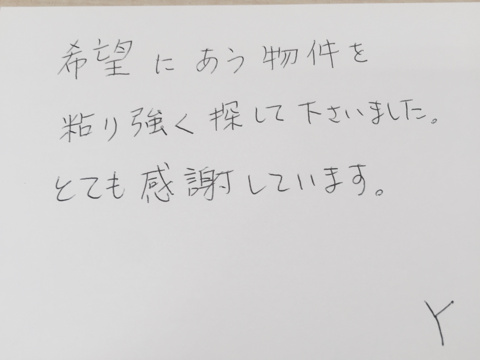 希望にあう物件を
粘り強く探して下さいました。
とても感謝しています。
Y